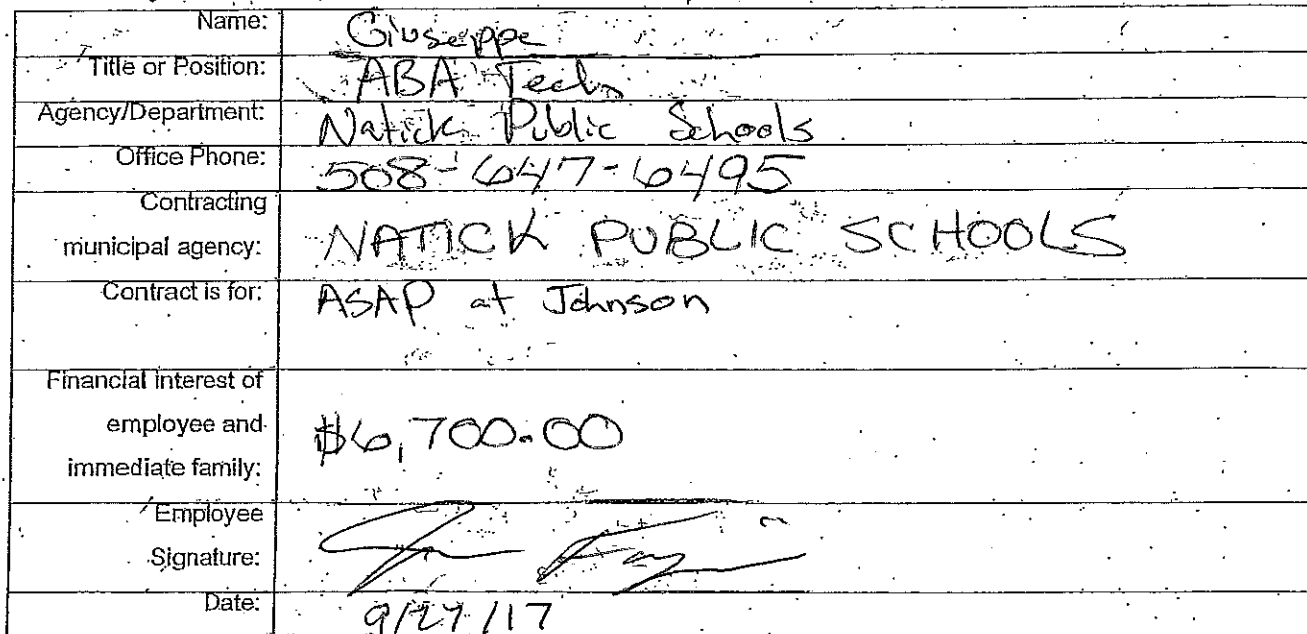 Name: Giuseppe
Title or Position: ABA Tech
Agency/Department: Natick Public Schools
Office Phone: 508-647-6495
Contracting
municipal agency: NATICK PUBLIC SCHOOLS
Contract is for: ASAP at Johnson
Financial interest of
employee and
immediate family: $6,700.00
Employee
Signature:
Date: 9/27/17